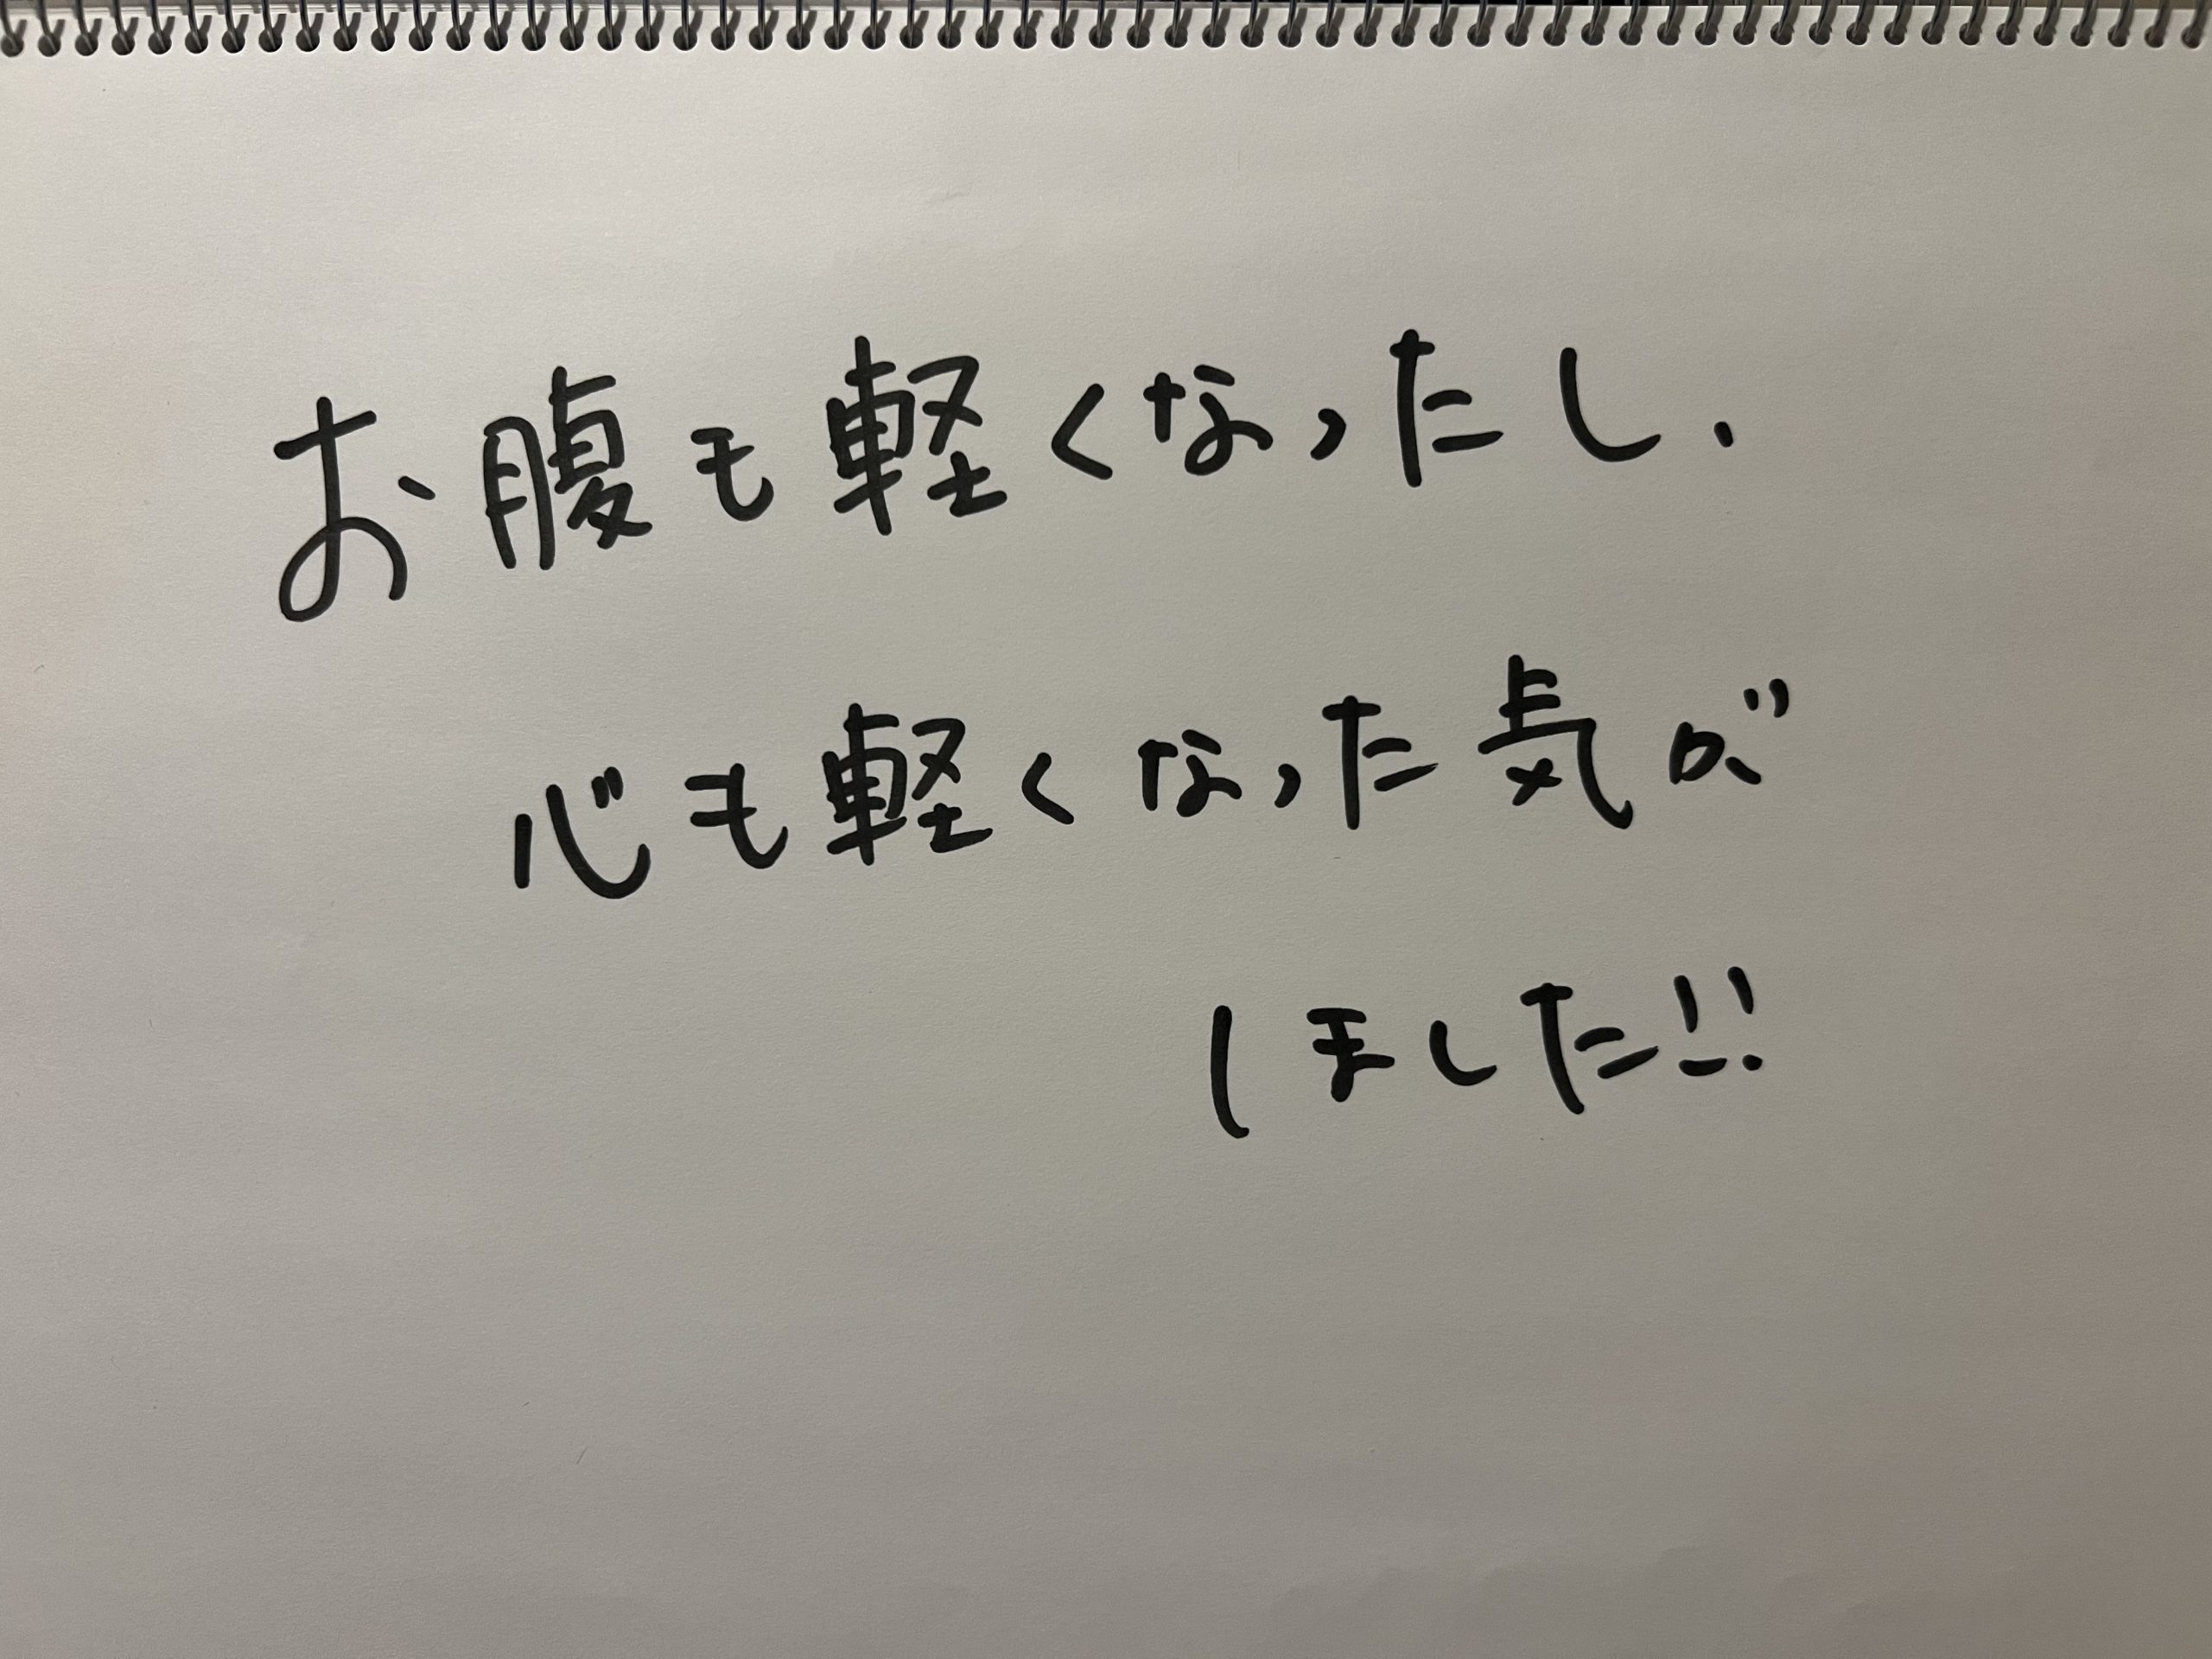 お腹も軽くなったし、
心も軽くなった気が
しました!!